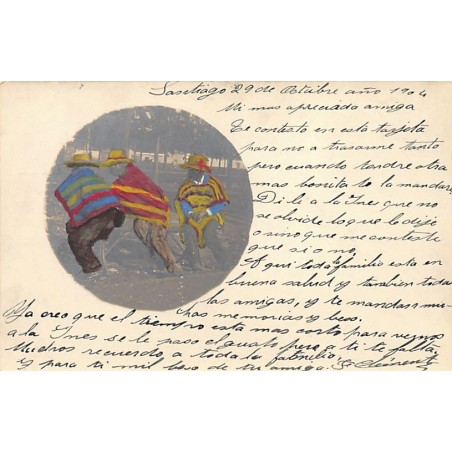 Santiago 29 de Octubre año 1904
Mi mas apreciada amiga
Te contesto en esta tarjeta
para no a trasarme tanto
pero cuando tendre otra
mas bonita te la mandare
Di le a la Ines que no
se olvide lo que lo dije
o sino que me conteste
que si o no,
A qui toda familia esta en
buena salud y tambien todas
las amigas, y te mandan mu-
chas memorias y besos.
Ya creo que el tiempo esta mas corto para vernos
a la Ines se le paso el pero a ti te falta,
Muchos recuerdo a toda la familia,
y para ti mil besos de tu amiga.